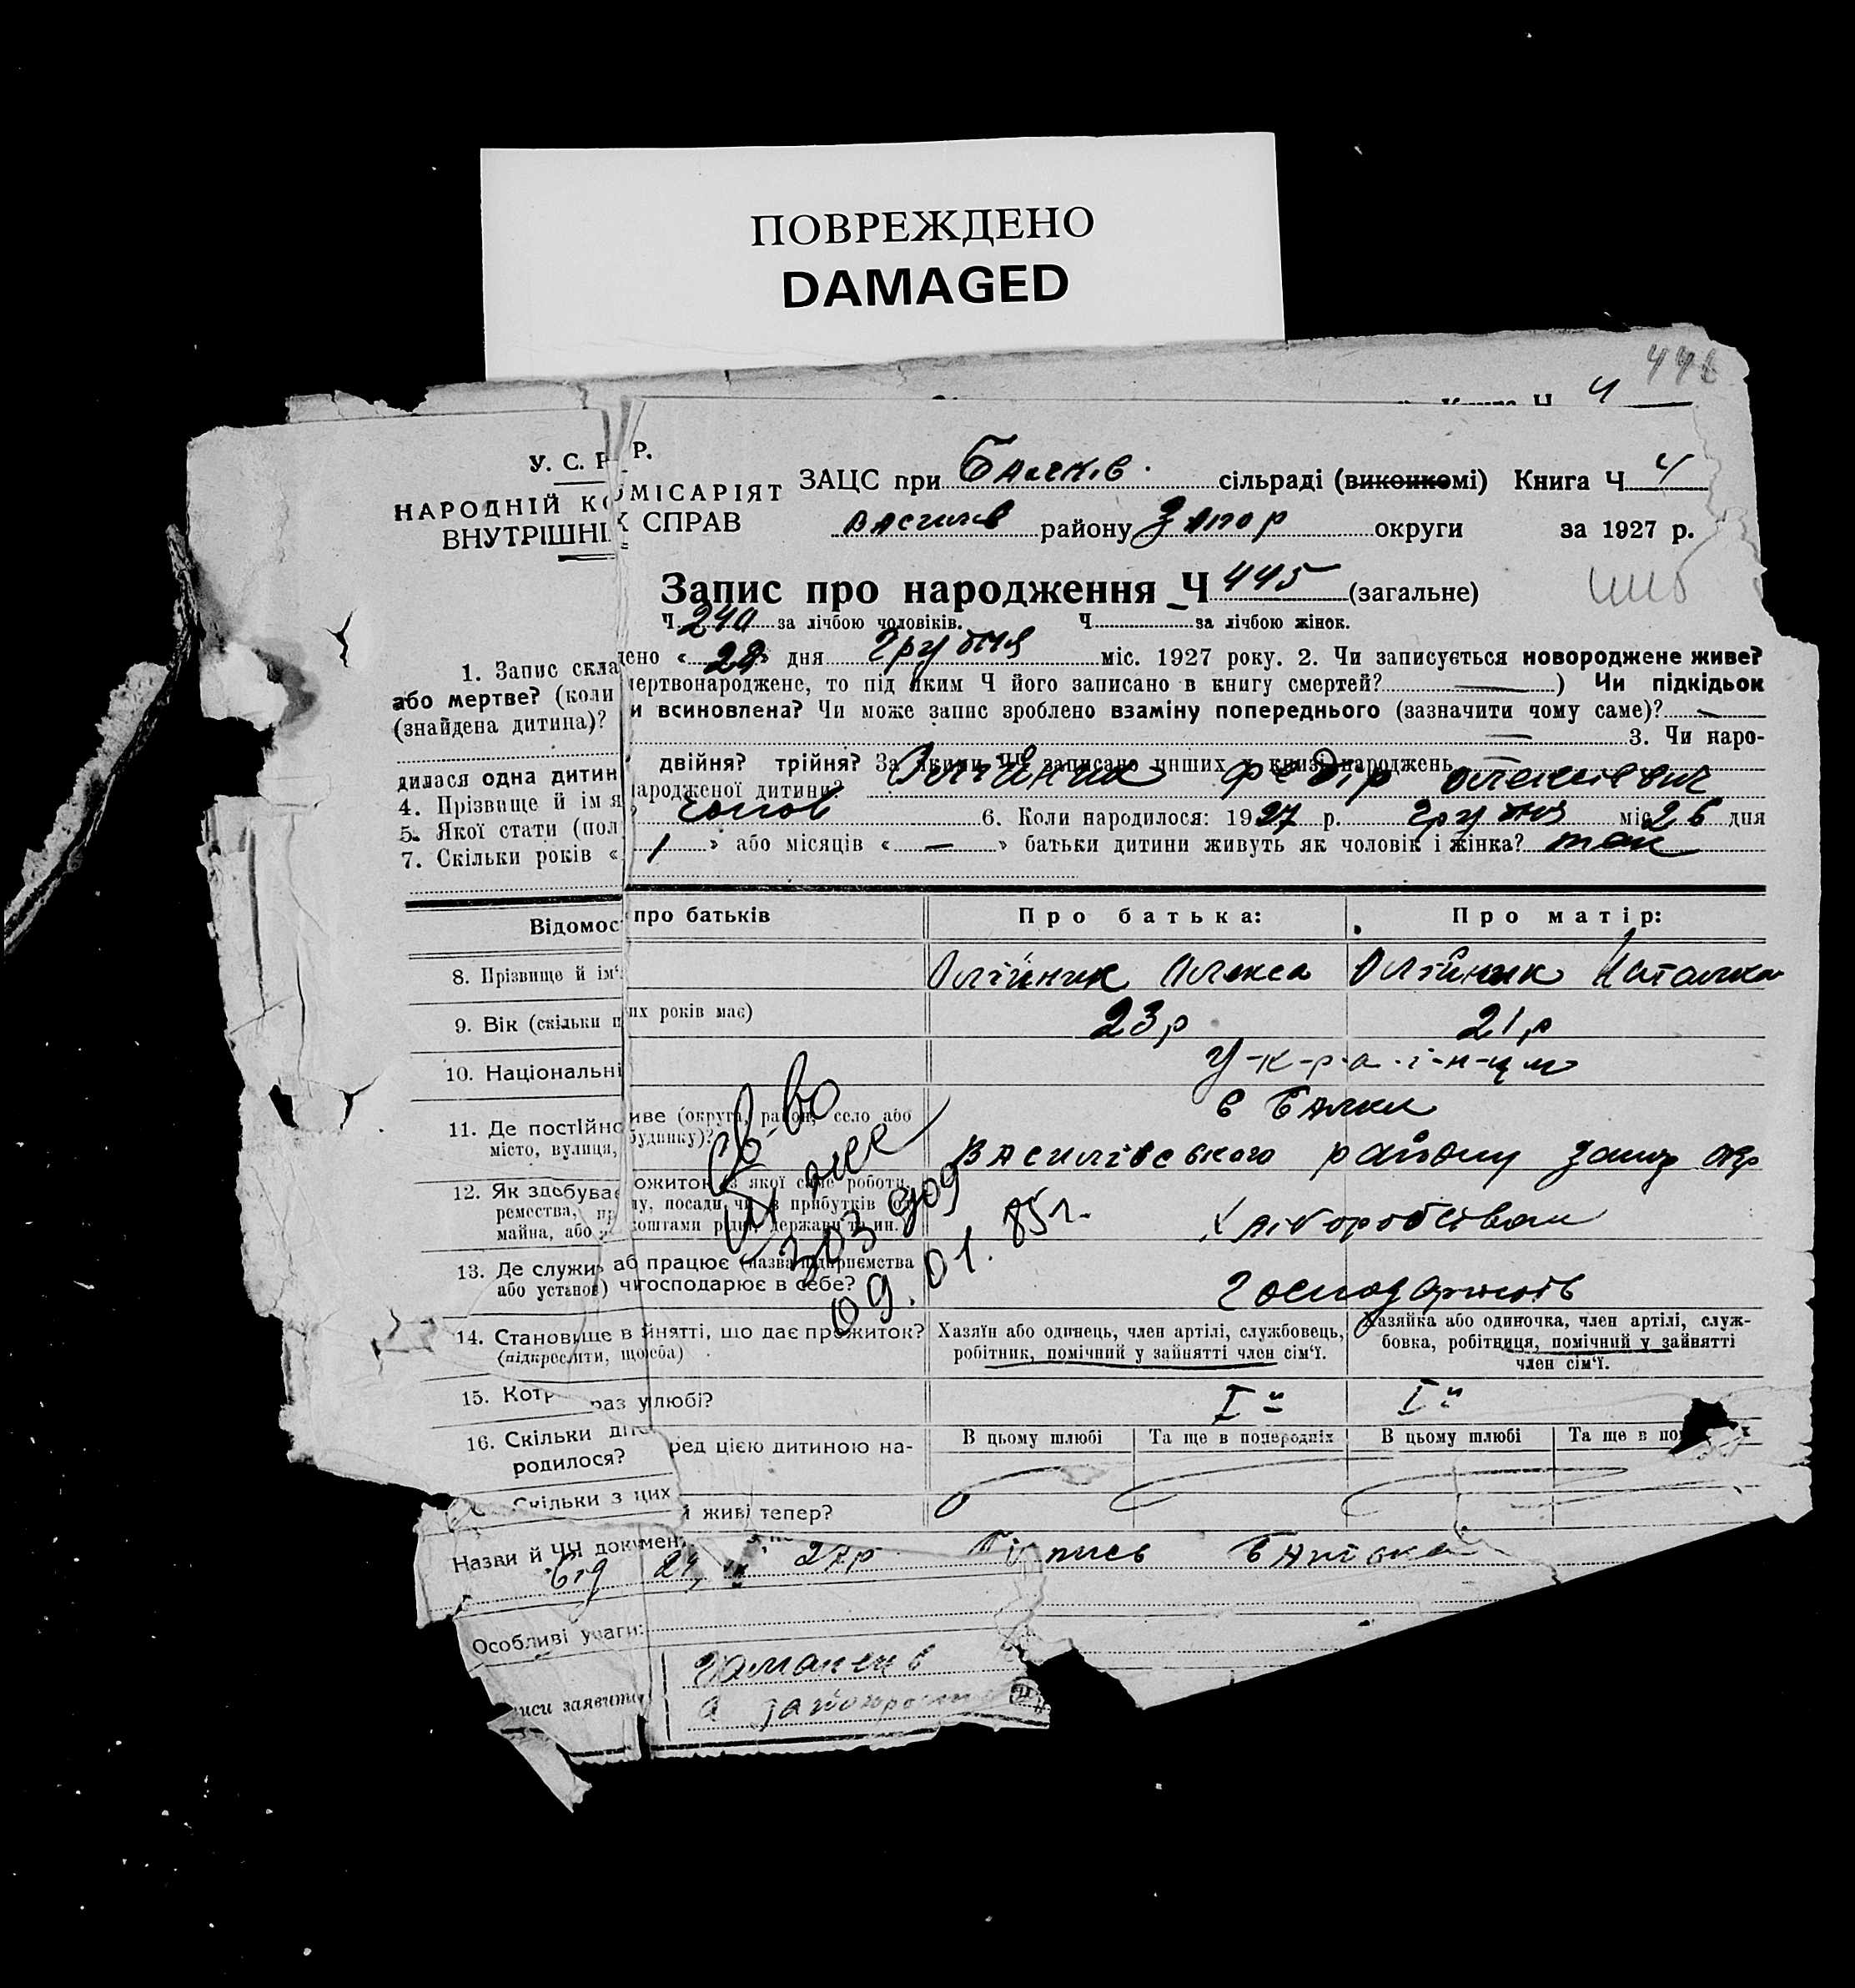 ПОВРЕЖДЕНО
DAMAGED
Ч 4
У. С. Р. Р.
НАРОДНІЙ КОМІСАРІЯТ
ВНУТРІШНІХ СПРАВ
ЗАЦС при Балків. сільраді (виконкомі) Книга Ч 4
Василів району Запор округи за 1927 р.
Запис про народження Ч 445 (загальне)
Ч 240 за лічбою чоловіків. Ч за лічбою жінок.
1. Запис скла дено « 29 » дня Грудня міс. 1927 року. 2. Чи записується новороджене живе?
або мертве? (коли мертвонароджене, то під яким Ч його записано в книгу смертей? — ) Чи підкідьок
(знайдена дитина)? и всиновлена? Чи може запис зроблено взаміну попереднього (зазначити чому саме)? —
— 3. Чи наро-
дилася одна дитин двійня? трійня? За якими ЧЧ записано инших у книзі народжень
4. Прізвище й ім'я народженої дитини? Олійник Федір Олексієвич
5. Якої стати (пол чолов 6. Коли народилося: 1927 р. грудня міс 26 дня
7. Скільки років « 1 » або місяців « — » батьки дитини живуть як чоловік і жінка? так
Відомос про батьків Про батька: Про матір:
8. Прізвище й ім' Олійник Олекса Олійник Наталка
9. Вік (скільки п их років має) 23 р 21 р
10. Національні У-к-р-а-ї-н-ц и
11. Де постійно иве (округа, район, село або
місто, вулиця, будинку)? с Балки
Василівського району Запор окр
12. Як здобуває ожиток (з якої саме роботи,
ремества, пр у, посади чи з прибутків од
майна, або коштами рідні, держави та ин. Хліборобством
13. Де служи або працює (назва підприємства
або установ) чи господарює в себе? Господарюють
14. Становище в йнятті, що дає прожиток?
(підкреслити, що
Хазяїн або одинець, член артілі, службовець,
робітник, помічний у зайнятті член сім'ї.
Хазяйка або одиночка, член артілі, служ-
бовка, робітниця, помічний у зайнятті
член сім'ї.
15. Котр раз у шлюбі? I й I й
16. Скільки діт ред цією дитиною на-
родилося?
В цьому шлюбі Та ще в попередніх В цьому шлюбі Та ще в по х
Скільки з цих й живі тепер?
Назви й ЧЧ докумен
від 27 р Підпись Батька
Особливі уваги:
иси заявите
Св-во
303 909
09.01.85 г.